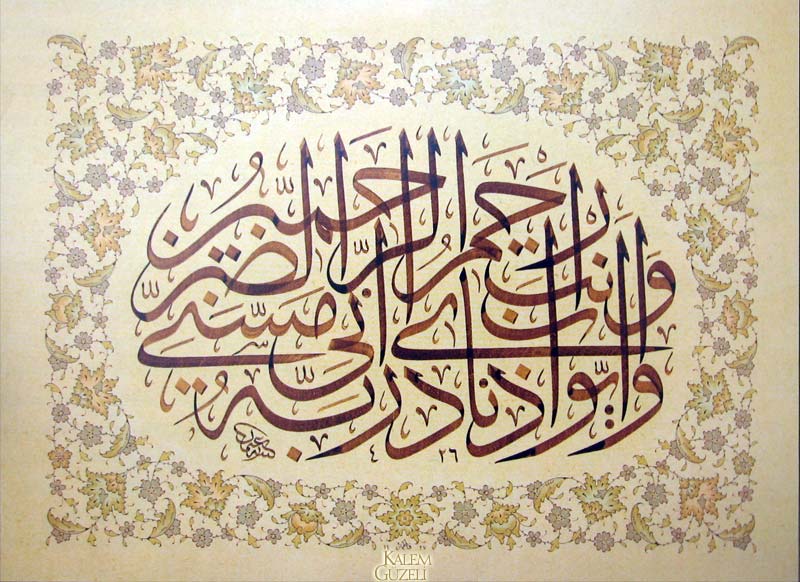 وايوب اذ نادى ربه
انى مسنى الضر
وانت ارحم الراحمين
٤ ٢٦
KALEM
GÜZELİ